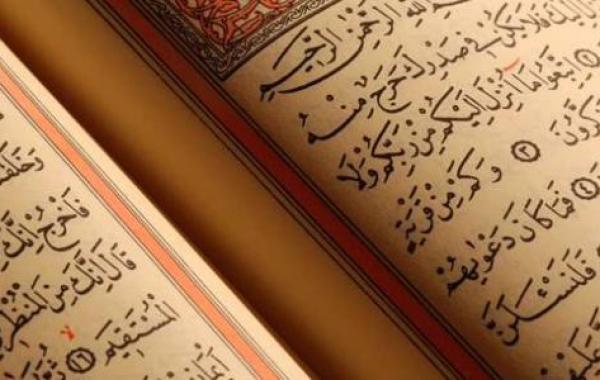 اللهِ الرَّحْمٰنِ الرَّحِيمِ
إِلَيْكَ فَلَا يَكُنْ فِي صَدْرِكَ حَرَجٌ مِنْهُ
اِتَّبِعُوا مَا أُنْزِلَ إِلَيْكُمْ مِنْ رَبِّكُمْ وَلَا
٣ وَكَمْ مِنْ قَرْيَةٍ
٤ فَمَا كَانَ دَعْوٰيهُمْ
فَلَنَسْـَٔلَنَّ
عَلَيْهِمْ
فَاخْرُجْ إِنَّكَ
قَالَ إِنَّكَ مِنَ الْمُنْظَرِ
الْمُسْتَقِيمَ ١٦